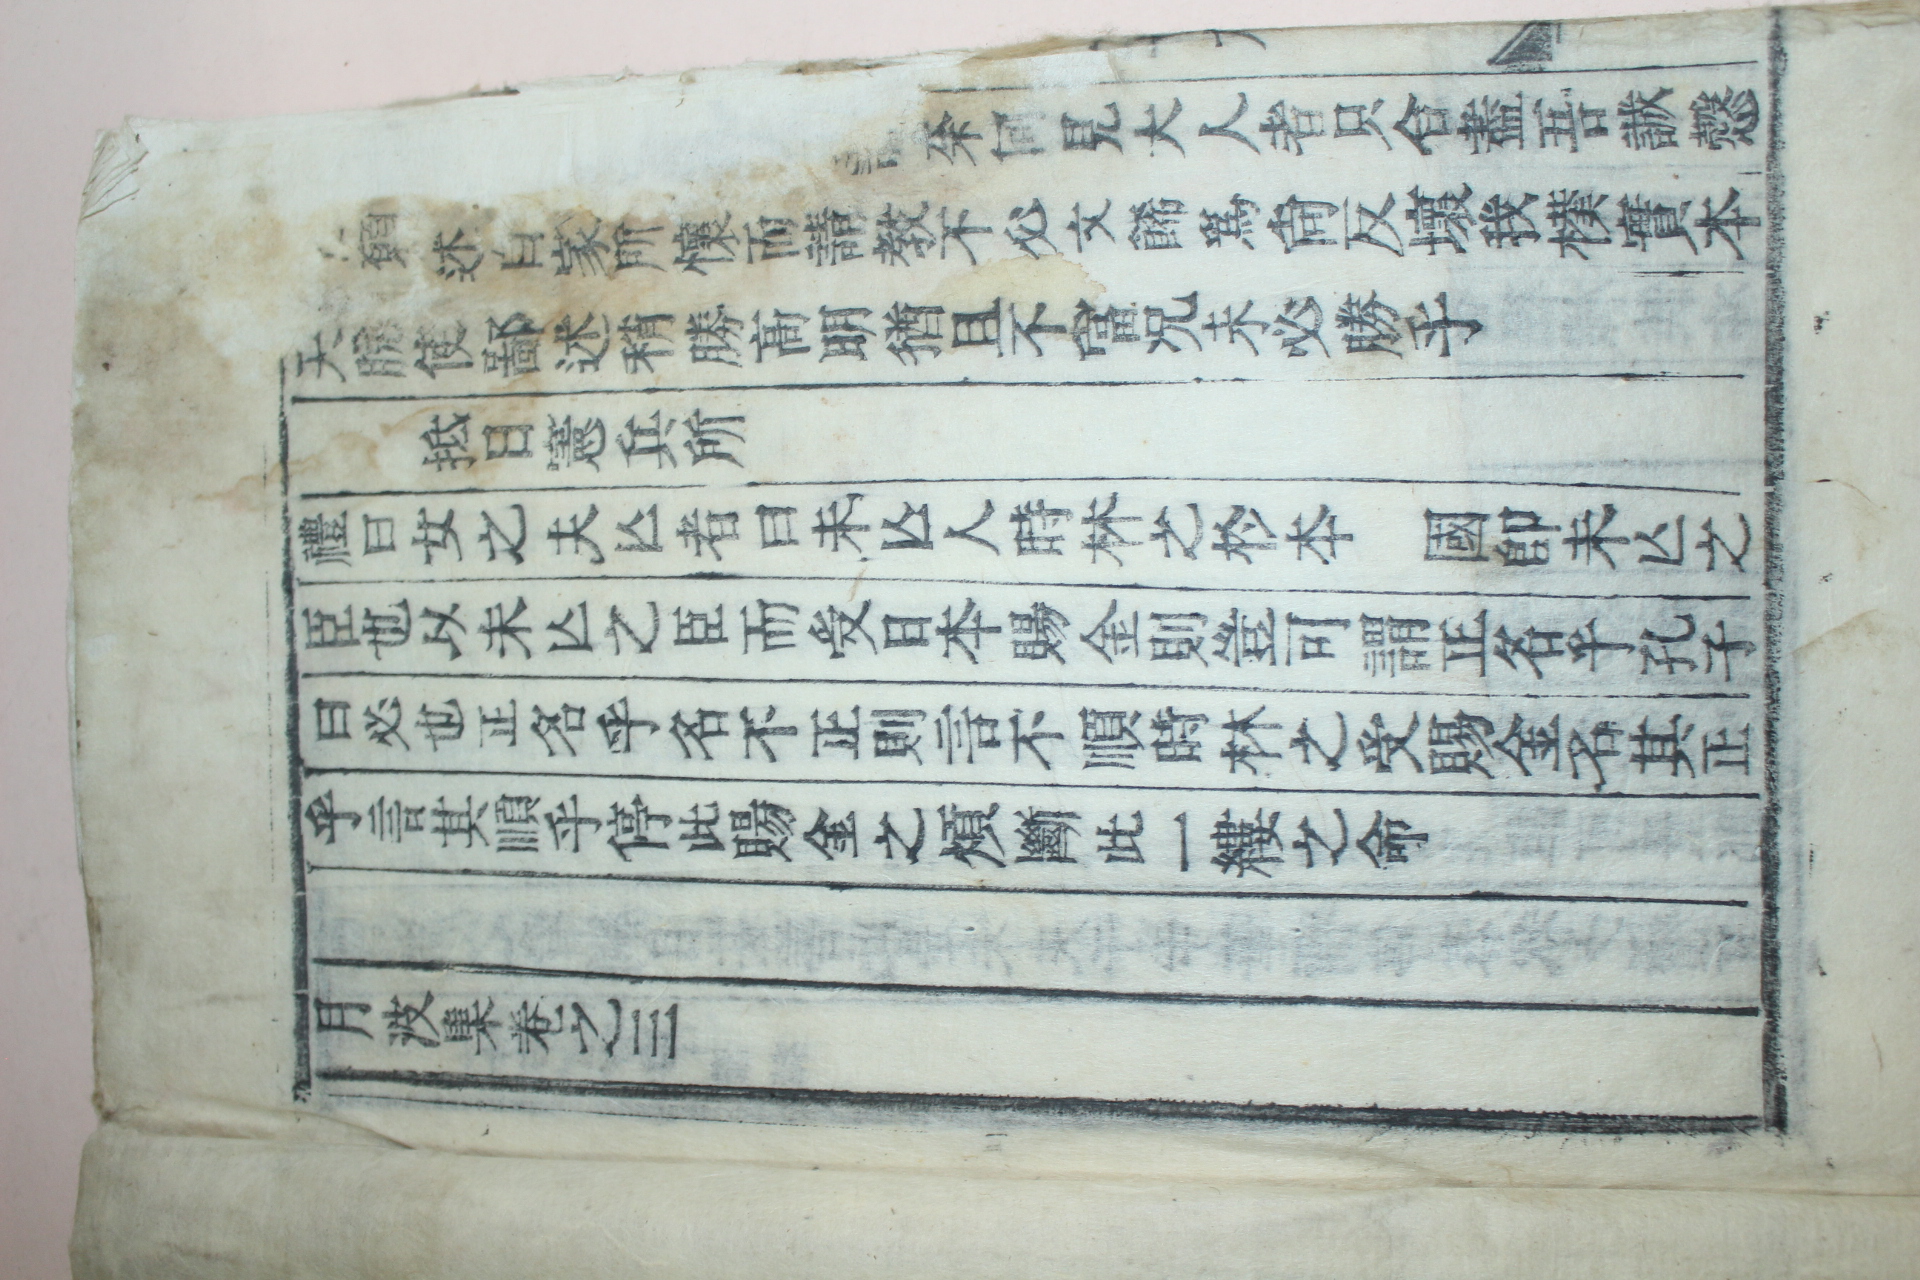 奈何見大人者只合盡吾誠慤
述自家所懷而請教不必文餙爲尙反壞我樸實本
天賦使鄙述稍勝高明猶且不當况未必勝乎
抵日憲兵所
禮曰女之夫亾者曰未亾人時林之於本 國卽未亾之
臣也以未亾之臣而受日本賜金則豈可謂正名乎孔子
曰必也正名乎名不正則言不順時林之受賜金名其正
乎言其順乎停此賜金之煩斷此一縷之命
月波集卷之三